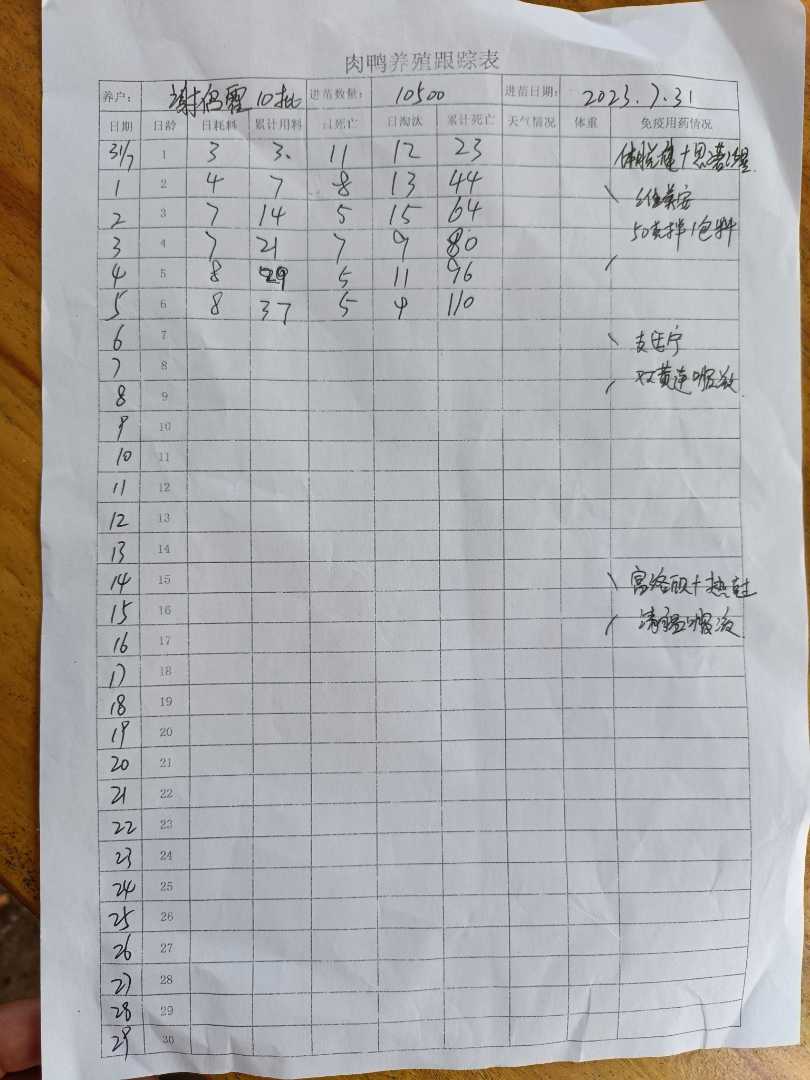 肉鸭养殖跟踪表
养户: 谢 霞10批 进苗数量: 10500 进苗日期: 2023.7.31
日期 日龄 日耗料 累计用料 日死亡 日淘汰 累计死亡 天气情况 体重 免疫用药情况
31/7 1 3 3. 11 12 23
1 2 4 7 8 13 44
2 3 7 14 5 15 64 50 拌1包料
3 4 7 21 7 9 80
4 5 8 29 5 11 96
5 6 8 37 5 9 110
6 7
7 8 双黄连口服液
8 9
9 10
10 11
11 12
12 13
13 14
14 15
15 16 清瘟口服液
16 17
17 18
18 19
19 20
20 21
21 22
22 23
23 24
24 25
25 26
26 27
27 28
28 29
29 30